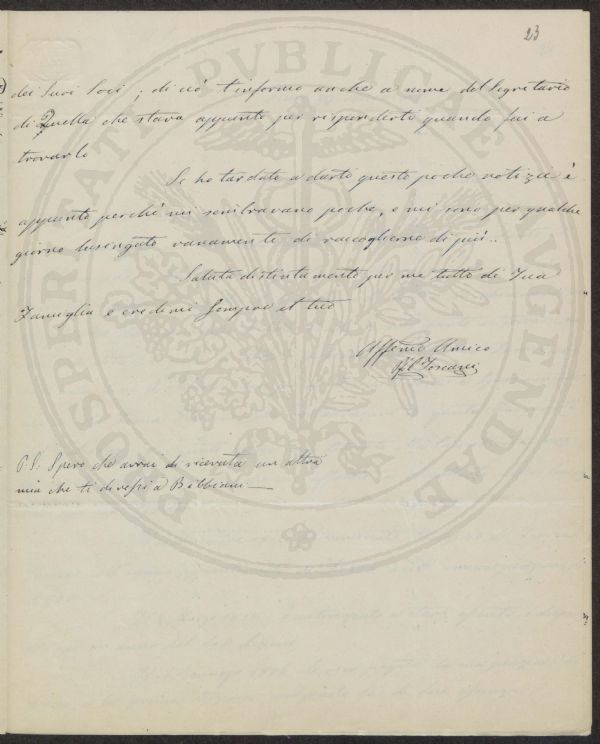 23
dei Suoi Soci; di ciò t'informo anche a nome del Segretario
di Quella che stava appunto per risponderti quando fui a
trovarlo
Se ho tardato a darti queste poche notizie è
appunto perchè mi sembravano poche, e mi sono per qualche
giorno lusingato vanamente di raccoglierne di più.
Saluta distintamente per me tutti di Tua
Famiglia e credimi sempre il tuo
Affemo Amico
Toscani
P.S. Spero che avrai di ricevuta un altra
mia che ti diressi a Bibbiani
PROSPERITATI PVBLICAE AVGENDAE